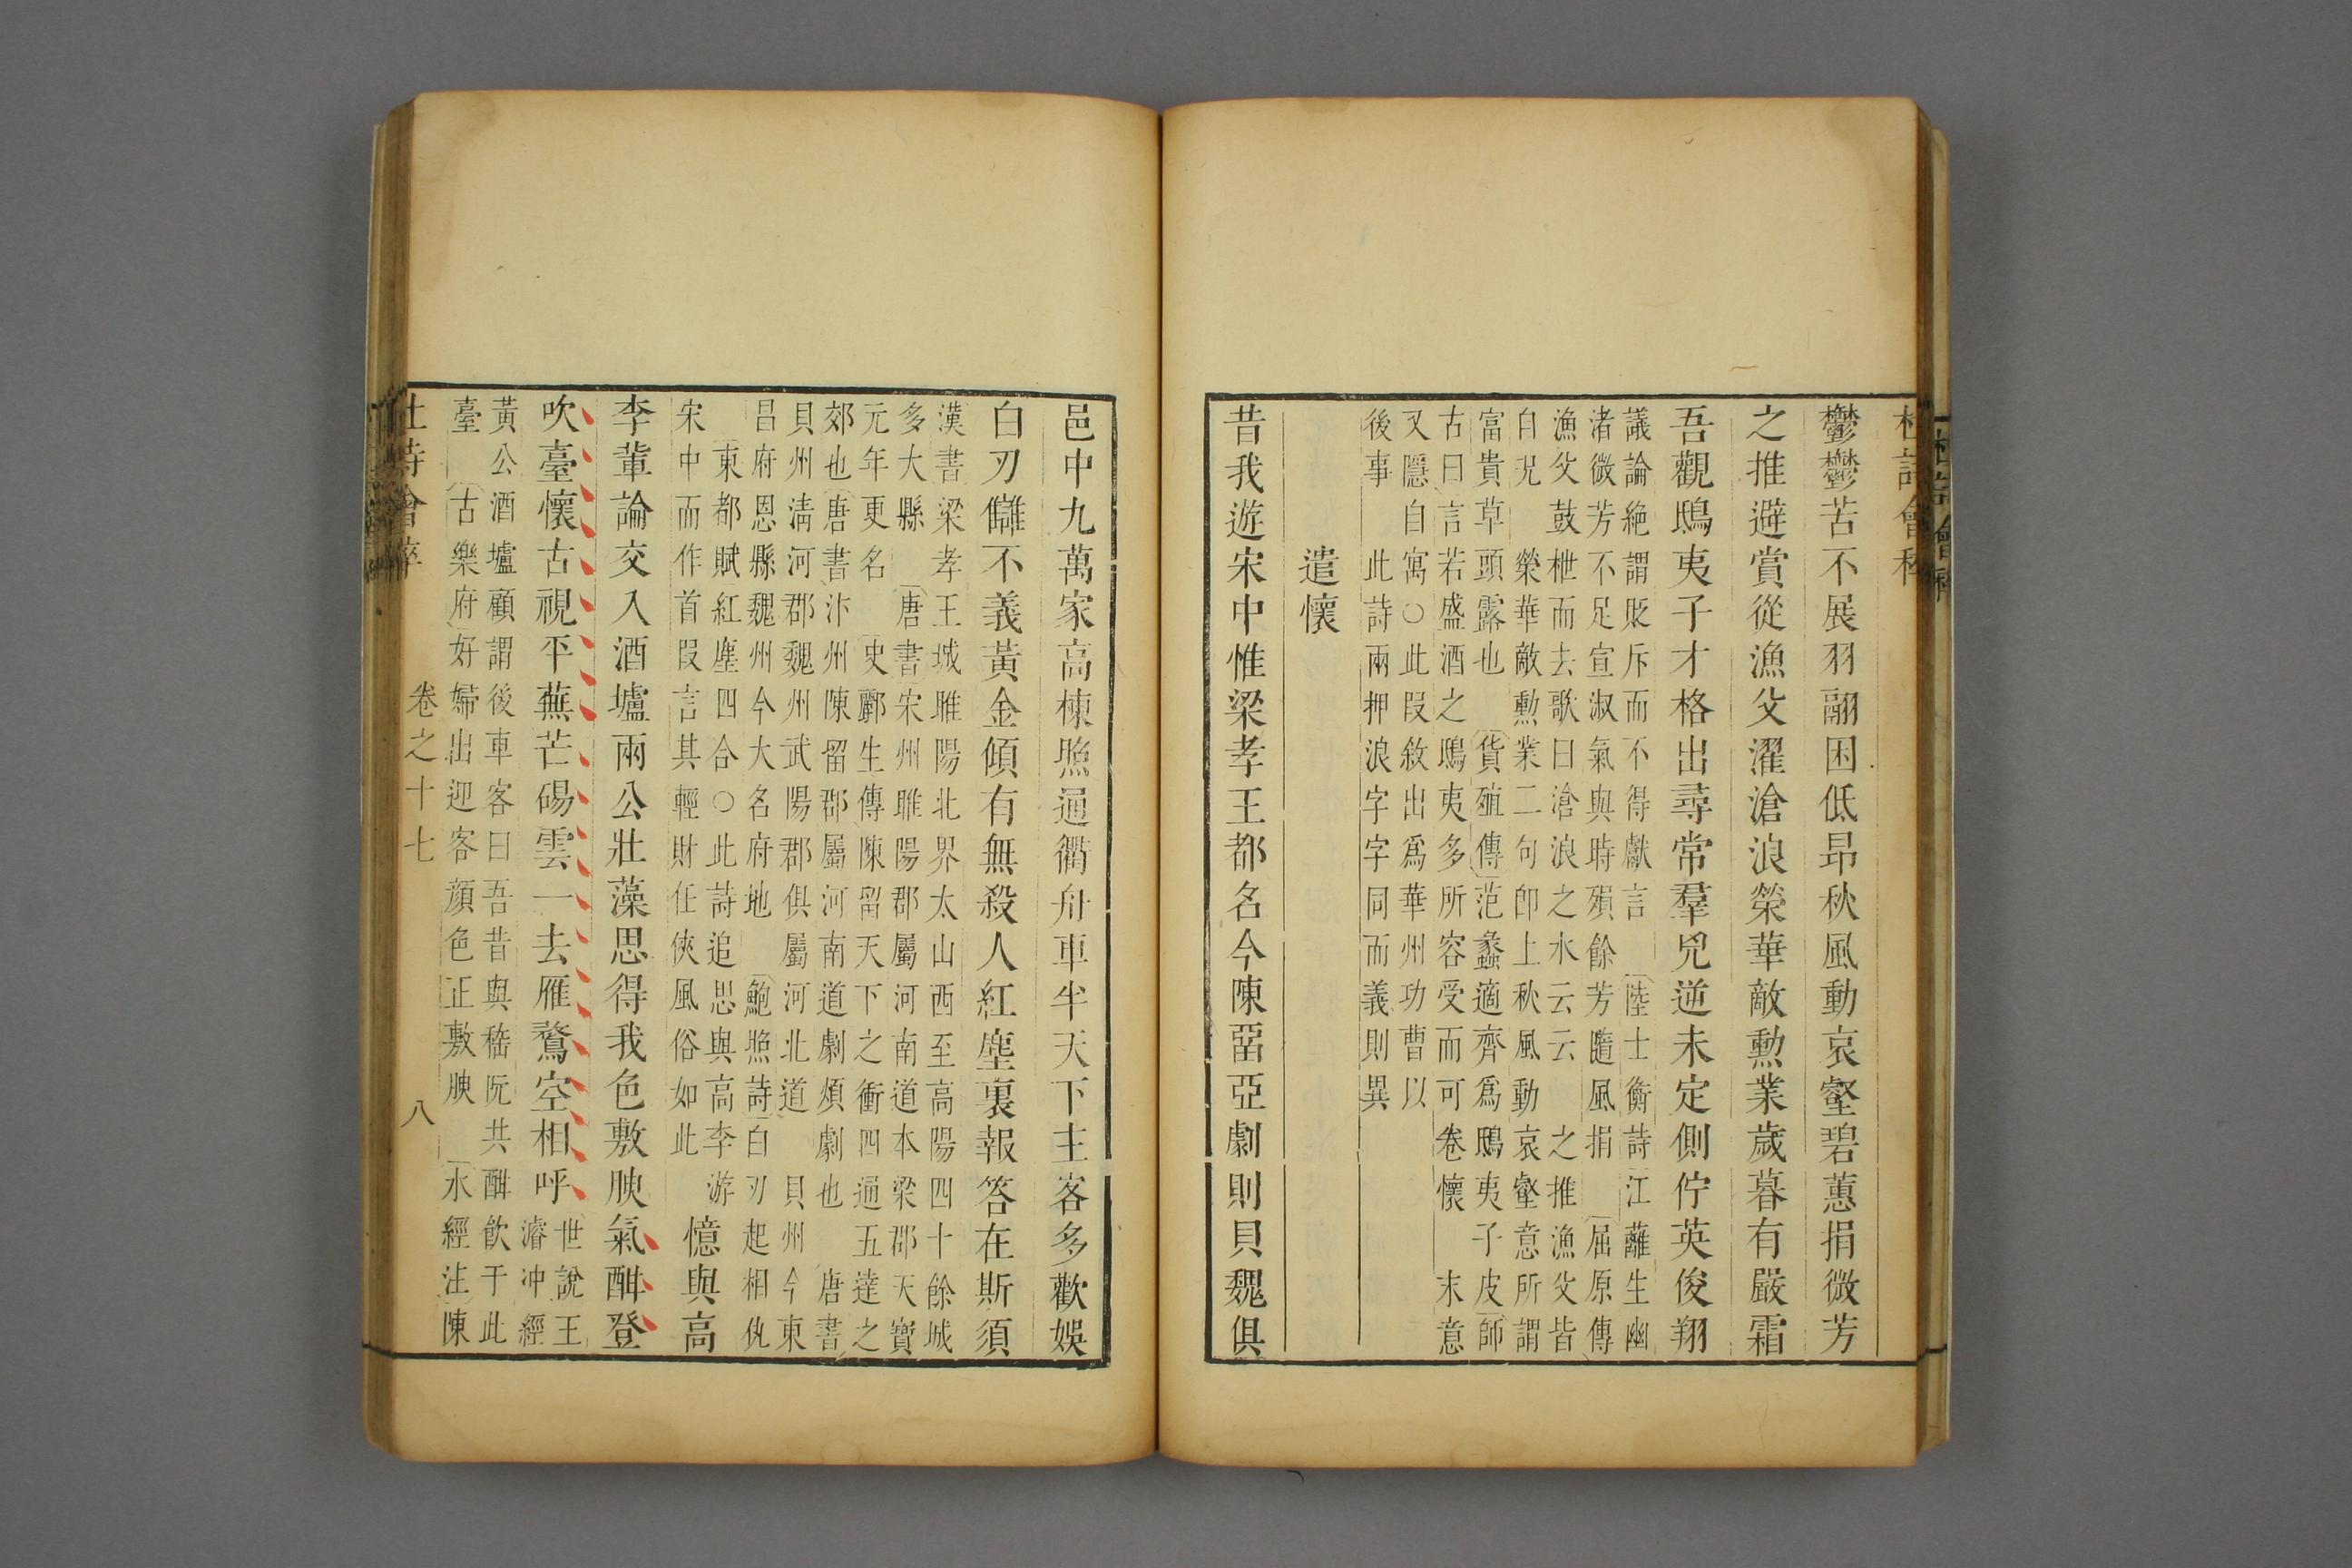 杜詩會稡
鬱鬱苦不展羽翮困低昂秋風動哀壑碧蕙捐微芳
之推避賞從漁父濯滄浪榮華敵勲業歲暮有嚴霜
吾觀鴟夷子才格出尋常羣兇逆未定側佇英俊翔
議論絶謂貶斥而不得獻言 陸士衡詩江蘺生幽
渚微芳不足宣淑氣與時殞餘芳隨風捐 屈原傳
漁父鼓枻而去歌曰滄浪之水云云 之推漁父皆
自况 榮華敵勲業二句卽上秋風動哀壑意所謂
富貴草頭露也 貨殖傳范蠡適齊爲鴟夷子皮師
古曰言若盛酒之鴟夷多所容受而可卷懷 末意
又隱自寓○此叚敘出爲華州功曹以
後事 此詩兩押浪字字同而義則異
遣懷
昔我遊宋中惟梁孝王都名今陳畱亞劇則貝魏俱
邑中九萬家高棟照通衢舟車半天下主客多歡娛
白刃讎不義黃金傾有無殺人紅塵裏報答在斯須
漢書梁孝王城睢陽北界太山西至高陽四十餘城
多大縣 唐書宋州睢陽郡屬河南道本梁郡天寶
元年更名 史酈生傳陳留天下之衝四通五達之
郊也唐書汴州陳留郡屬河南道劇煩劇也 唐書
貝州清河郡魏州武陽郡俱屬河北道 貝州今東
昌府恩縣魏州今大名府地 鮑照詩白刃起相仇
東都賦紅塵四合○此詩追思與高李游
宋中而作首叚言其輕財任俠風俗如此
憶與高
李輩論交入酒壚兩公壯藻思得我色敷腴氣酣登
吹臺懷古視平蕪芒碭雲一去雁鶩空相呼
世說王
濬冲經
黃公酒壚顧謂後車客曰吾昔與嵇阮共酣飮于此
臺 古樂府好婦出迎客顔色正敷腴 水經注陳
杜詩會稡 卷之十七 八